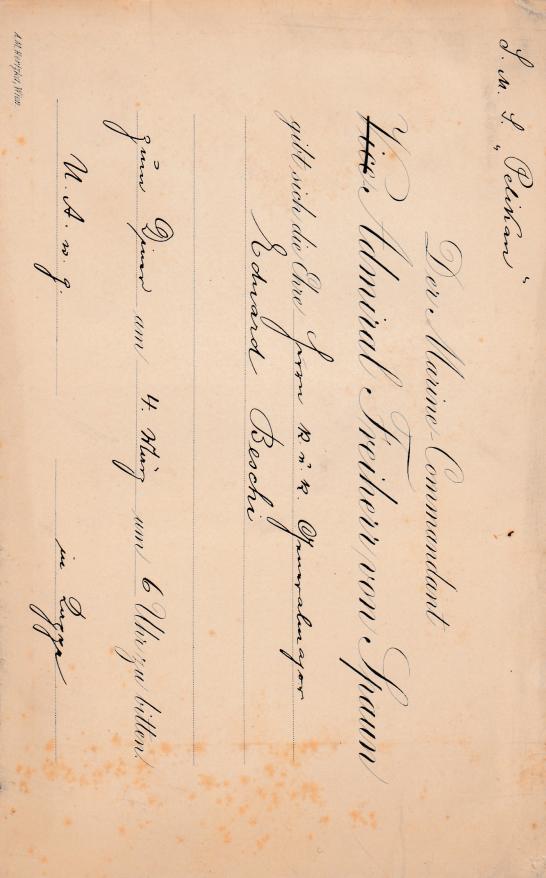 S. M. S. „Pelikan“
Der Marine-Commandant
Vice Admiral Freiherr von Spaun
gibt sich die Ehre Herrn k. u. k. Generalmajor
Eduard Beschi
zum Diner am 4. März um 6 Uhr zu bitten.
U. A. w. g. in